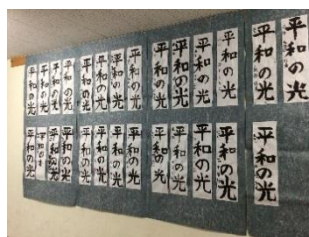 平和の光
平和の光
平和の光
平和の光
平和の光
平和の光
平和の光
平和の光
平和の光
平和の光
平和の光
平和の光
平和の光
平和の光
平和の光
平和の光
平和の光
平和の光
平和の光
平和の光
平和の光
平和の光
平和の光
平和の光
平和の光
平和の光
平和の光